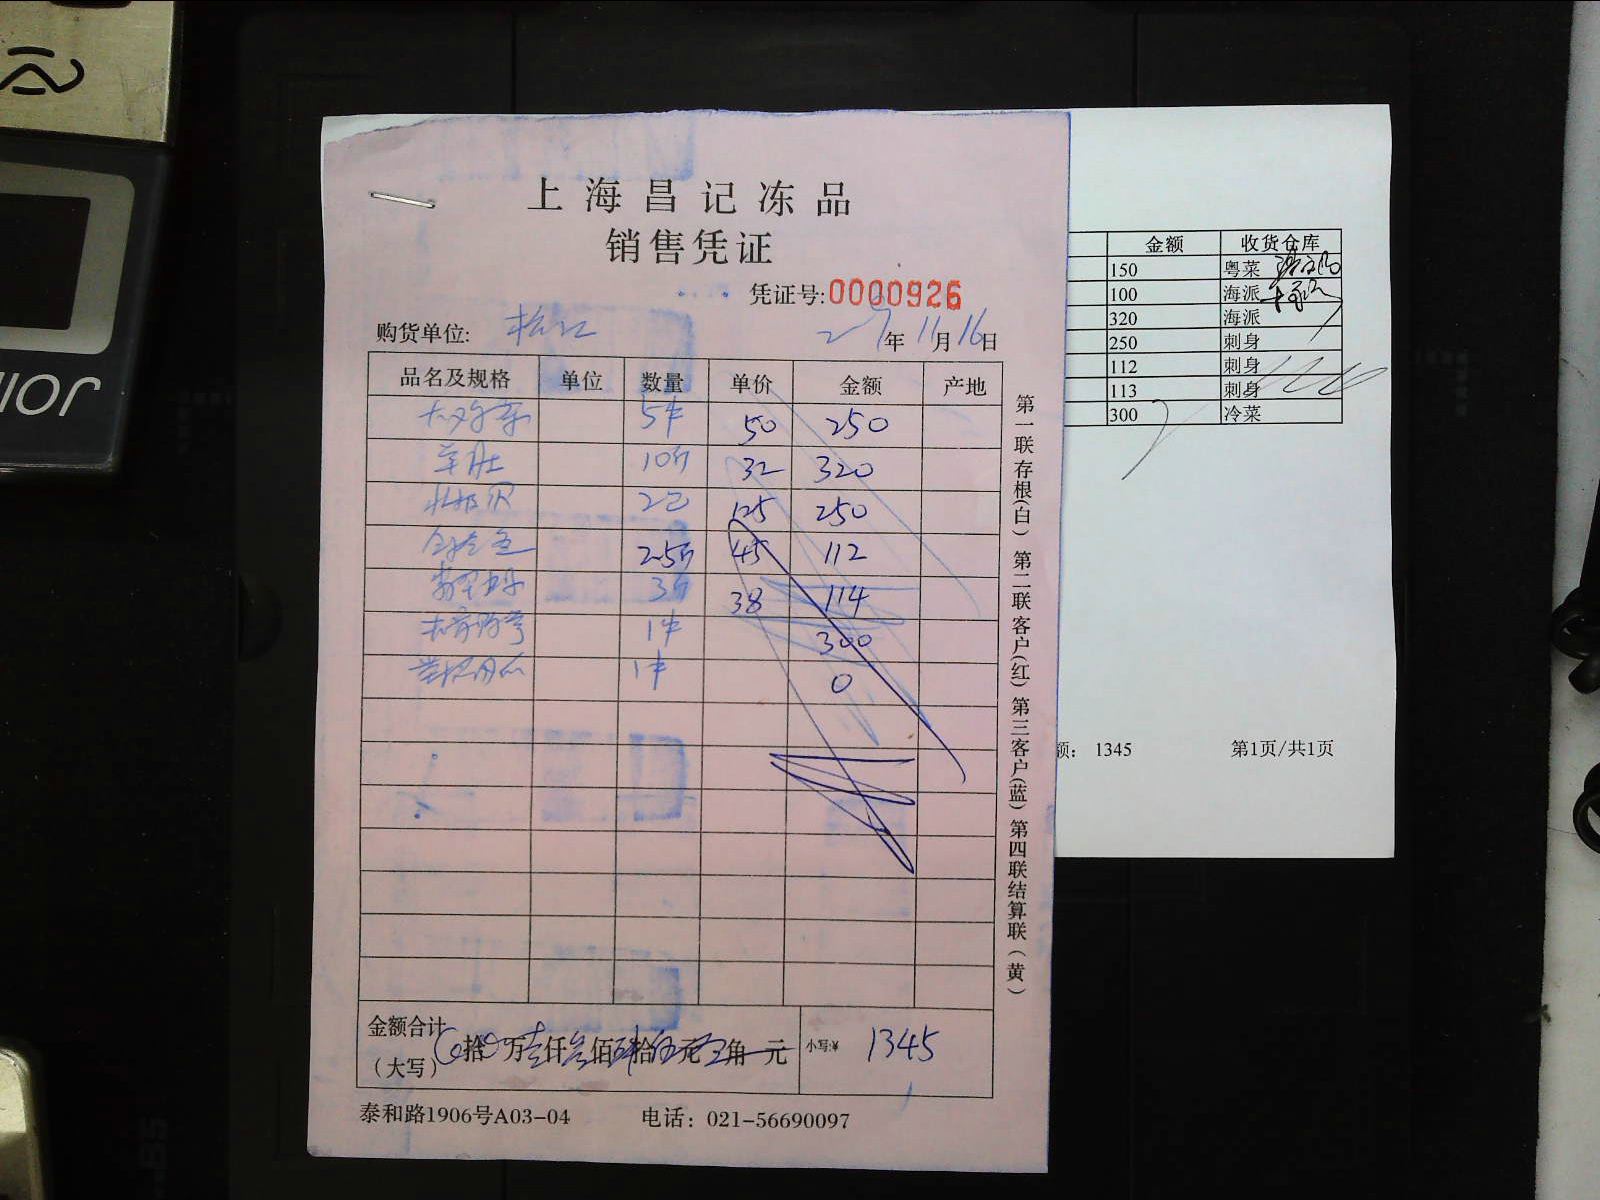 上海昌记冻品
销售凭证
凭证号:0000926
购货单位: 松江 年11月16日
品名及规格 单位 数量 单价 金额 产地
5件 50 250
羊肚 10斤 32 320
北极贝 2包 125 250
2.5斤 45 112
3斤 38 114
1件 300
1件 0
金额合计
(大写) 拾 万壹仟叁佰肆拾伍元 角 元 小写:¥ 1345
泰和路1906号A03-04 电话：021-56690097
第一联存根(白) 第二联客户(红) 第三客户(蓝) 第四联结算联(黄)
金额 收货仓库
150 粤菜
100 海派
320 海派
250 刺身
112 刺身
113 刺身
300 冷菜
额： 1345 第1页/共1页
JOIN